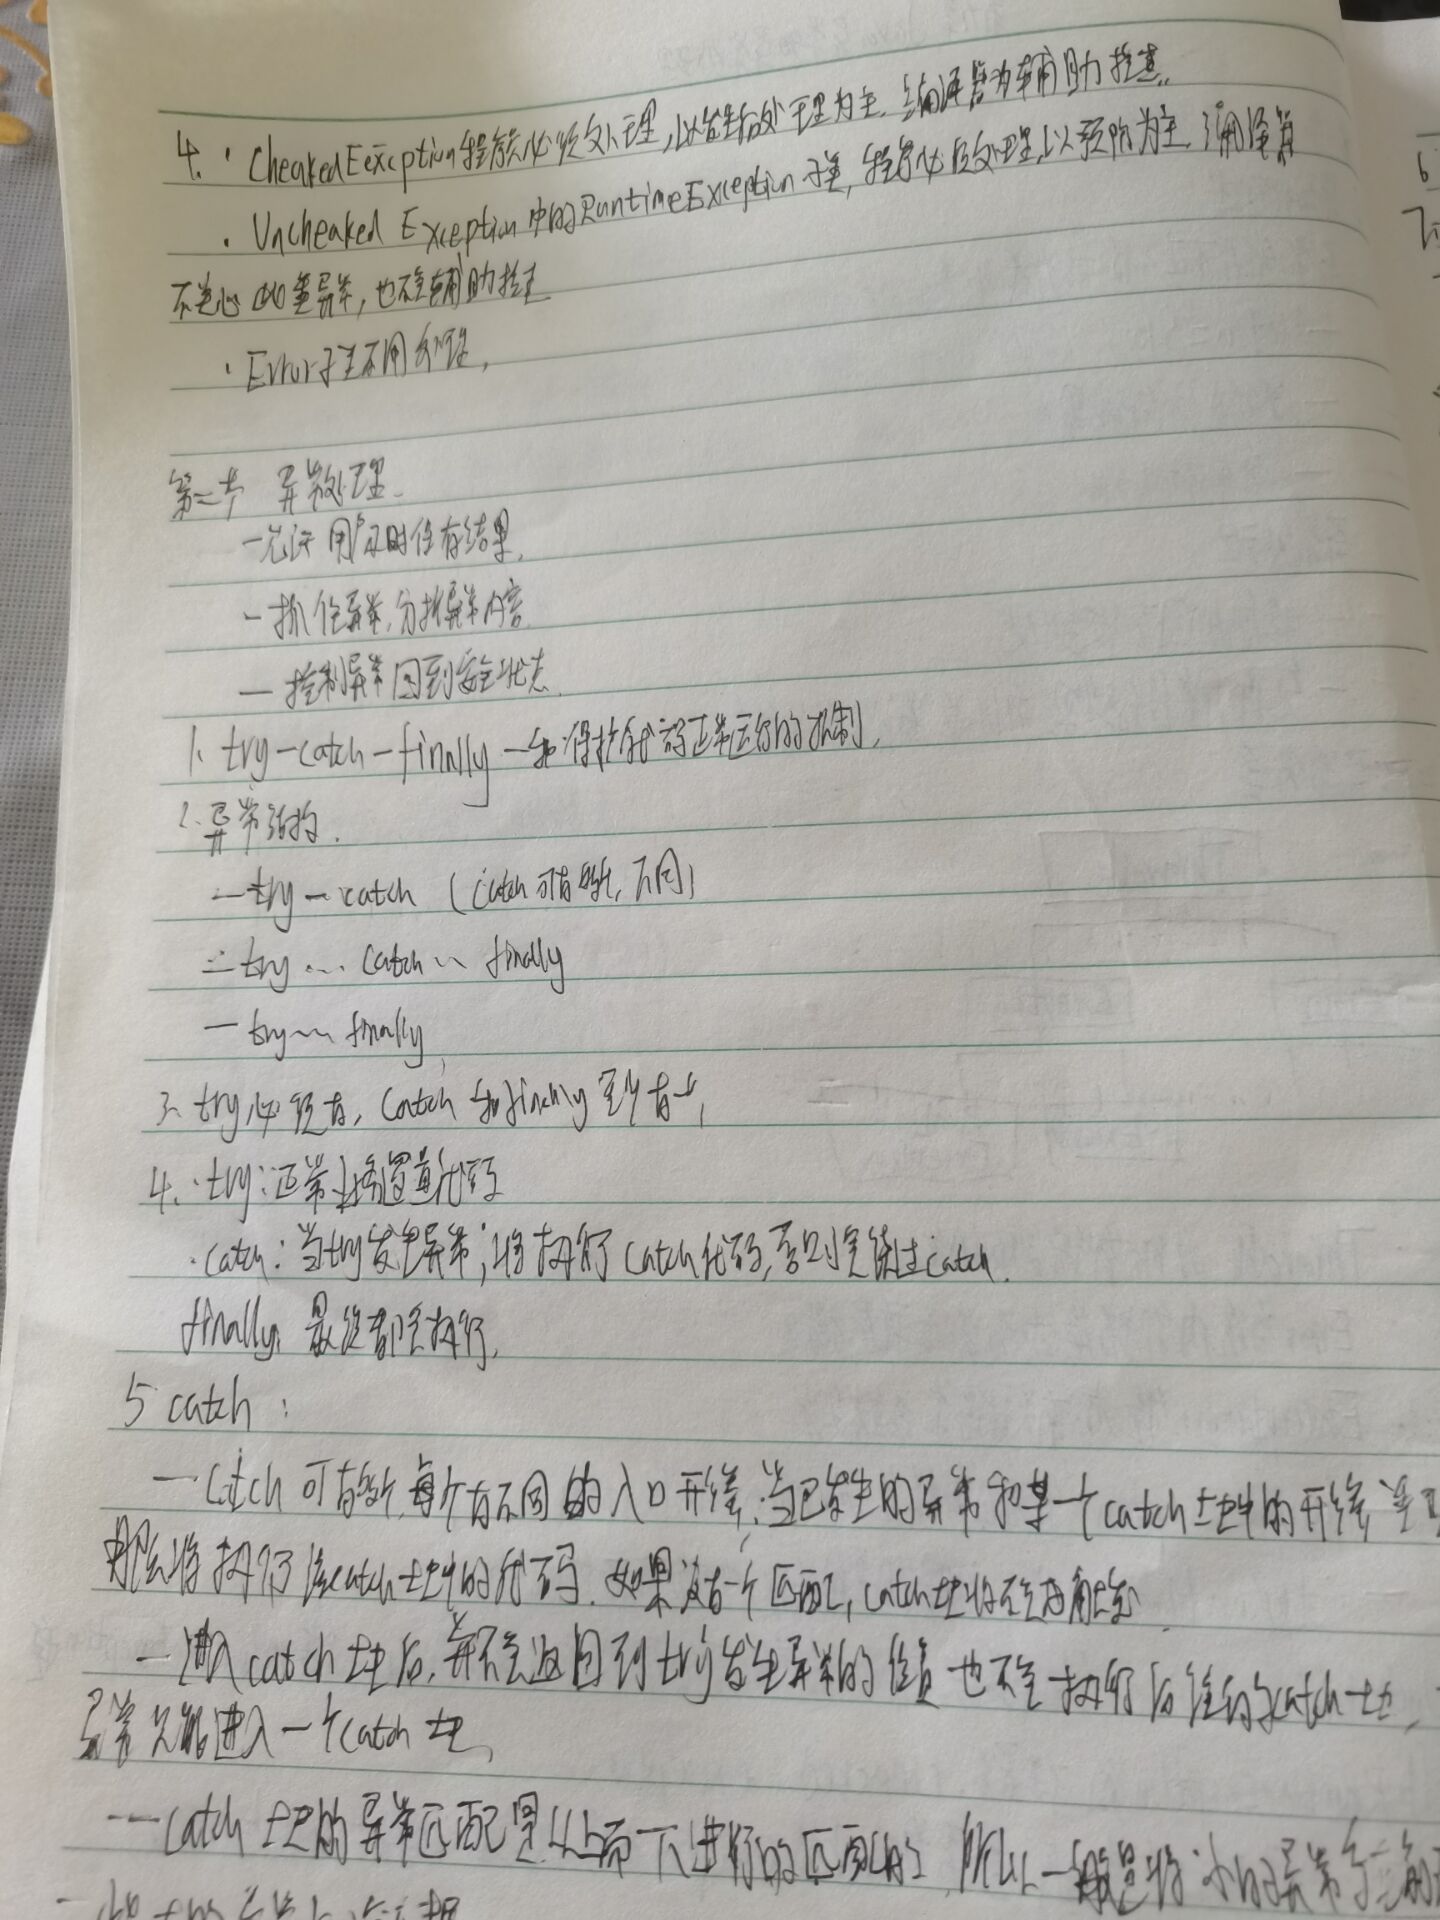 4. · CheakedEexception程序必须处理,以发生后处理为主,编译器为辅助检查.
· Uncheaked Exception中的RuntimeException子类,程序必须处理,以预防为主,编译器
不关心此类异常,也不会辅助检查
· Error子类不用处理,
第二节 异常处理
—允许用户及时保存结果,
—抓住异常,分析异常内容
— 控制异常回到安全状态
1. try-catch-finally 一种保护代码正常运行的机制,
2. 异常结构.
—try-catch (catch可有多个,不同)
—try... catch.. finally
—try... finally,
3. try必须有, catch和finally至少有一,
4. · try:正常业务逻辑代码
· catch: 当try发生异常;将执行catch代码,否则会绕过catch.
finally: 最终都会执行,
5 catch :
—catch 可有多个,每个有不同的入口形参,当已发生的异常和某一个catch块中的形参
那么将执行该catch块中的代码.如果没有一个匹配,catch块将不会被触发
—进入catch块后,并不会返回到try发生异常的位置也不会执行后续的catch块,
异常只能进入一个catch块,
—catch块的异常匹配是从上而下进行的匹配的,所以一般是将小的异常